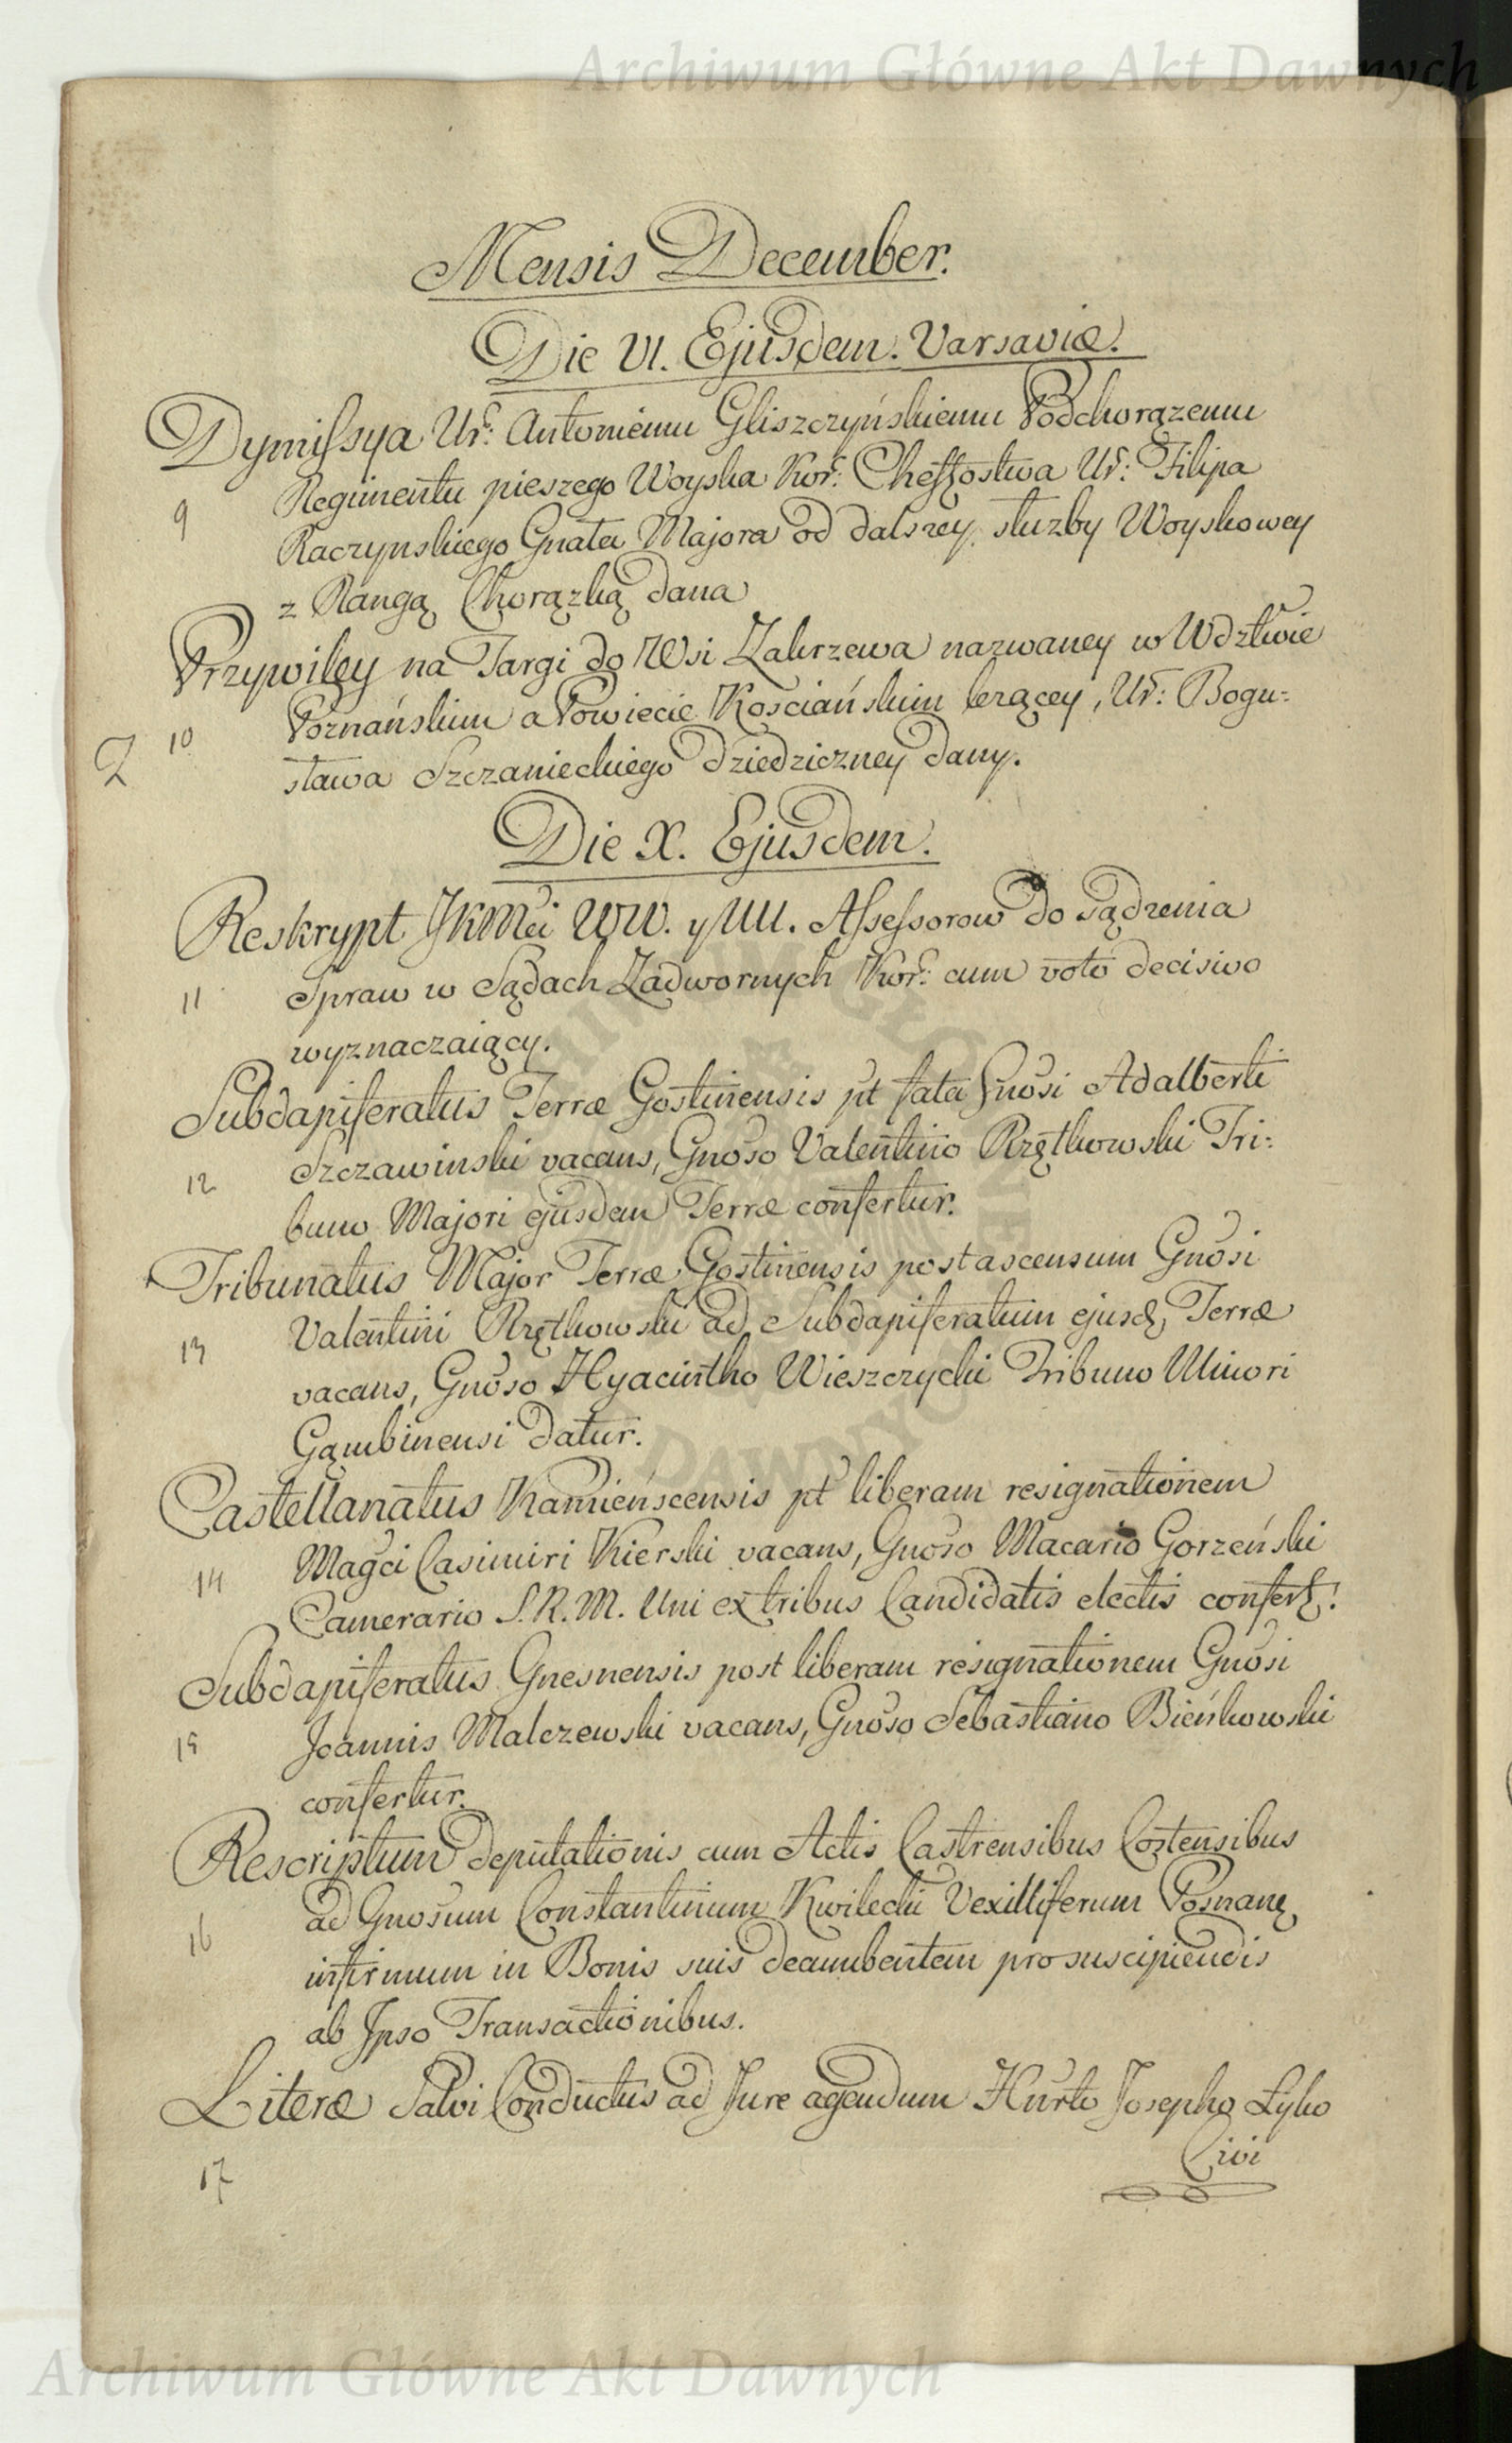 Archiwum Główne Akt Dawnych
Mensis December.
Die VI. Ejusdem. Varsaviæ.
Dymissya Ur: Antoniemu Gliszczyńskiemu Podchorązemu
9 Regimentu pieszego Woyska Kor: Cheffostwa Ur: Filipa
Raczynskiego Gnała Majora od dalszey służby Woyskowey
z Rangą Chorązką dana
Przywiley na Targi do Wsi Zakrzewa nazwaney w Wdztwie
10 Poznańskim a Powiecie Kościańskim leżącey, Ur: Bogu=
sława Szczanieckiego dziedziczney dany.
Die X. Ejusdem.
Reskrypt JKMci WW. y UU. Assessorow do sądzenia
11 Spraw w Sądach Zadwornych Kor: cum voto decisivo
wyznaczaiący.
Subdapiferatus Terræ Gostinensis pt fata Gnosi Adalberti
12 Szczawinski vacans, Gnoso Valentino Rzętkowski Tri=
buno Majori ejusdem Terræ confertur.
Tribunatus Major Terræ Gostinensis post ascensum Gnosi
13 Valentini Rzętkowski ad Subdapiferatum ejusd, Terræ
vacans, Gnoso Hyacintho Wieszczycki Tribuno Minori
Gąmbinensi datur.
Castellanatus Kamienscensis pt liberam resignationem
14 Magci Casimiri Kierski vacans, Gnoso Macario Gorzeński
Camerario S. R. M. Uni ex tribus Candidatis electis confert.
Subdapiferatus Gnesnensis post liberam resignationem Gnosi
15 Joannis Malczewski vacans, Gnoso Sebastiano Bieńkowski
confertur.
Rescriptum deputationis cum Actis Castrensibus Costensibus
16 ad Gnosum Constantinum Kwilecki Vexilliferum Posnanę
infirmum in Bonis suis decumbentem pro suscipiendis
ab Ipso Transactionibus.
Literæ Salvi Conductus ad Jure agendum Hurto Josepho Łyko
Civi
17
Archiwum Główne Akt Dawnych